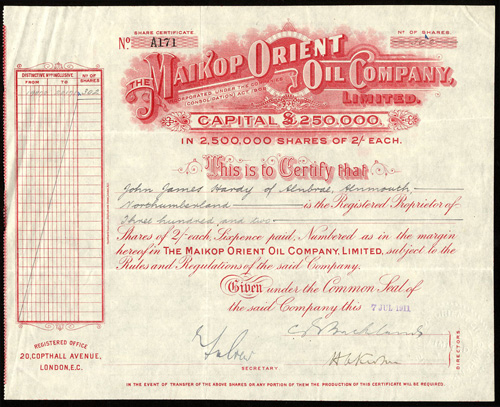 SHARE CERTIFICATE
Nº A171
Nº OF SHARES.
THE MAIKOP ORIENT
OIL COMPANY,
LIMITED.
INCORPORATED UNDER THE COMPANIES
(CONSOLIDATION) ACT, 1908
CAPITAL £250,000.
IN 2,500,000 SHARES OF 2/- EACH.
This is to Certify that
John James Hardy of
Northumberland is the Registered Proprietor of
Three hundred and two
Shares of 2/- each, Sixpence paid, Numbered as in the margin
hereof in THE MAIKOP ORIENT OIL COMPANY, LIMITED, subject to the
Rules and Regulations of the said Company.
Given under the Common Seal of
the said Company this 7 JUL 1911
SECRETARY
DIRECTORS.
IN THE EVENT OF TRANSFER OF THE ABOVE SHARES OR ANY PORTION OF THEM THE PRODUCTION OF THIS CERTIFICATE WILL BE REQUIRED.
DISTINCTIVE Nºˢ INCLUSIVE.
FROM TO
Nº OF SHARES
REGISTERED OFFICE
20, COPTHALL AVENUE,
LONDON, E.C.